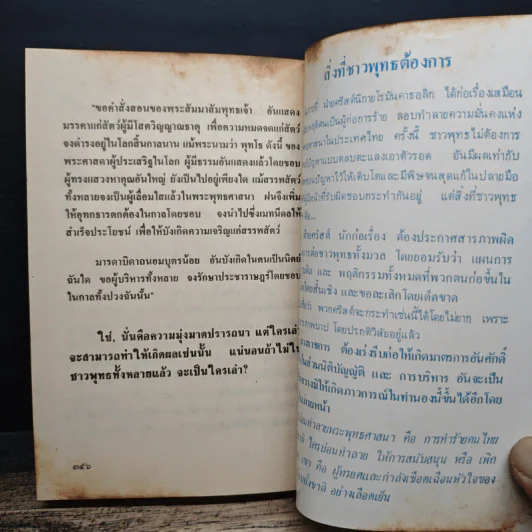 "ขอคำสั่งสอนของพระสัมมาสัมพุทธเจ้า อันแสดง
มรรคาแก่สัตว์ผู้มีโสตวิญญาณธาตุ เพื่อความหมดจดแก่สัตว์
จงดำรงอยู่ในโลกสิ้นกาลนาน แม้พระนามว่า พุทโธ ดังนี้ ของ
พระศาสดาผู้ประเสริฐในโลก ผู้มีธรรมอันแสดงแล้วโดยชอบ
ผู้ทรงแสวงหาคุณอันใหญ่ ยังเป็นไปอยู่เพียงใด แม้สรรพสัตว์
ทั้งหลายจงเป็นผู้เลื่อมใสแล้วในพระพุทธศาสนา ฝนจึงเพิ่ม
ให้อุทกธารตกต้องในกาลโดยชอบ จงนำไปซึ่งเมทนีดลให้
สำเร็จประโยชน์ เพื่อให้บังเกิดความเจริญแก่สรรพสัตว์
มารดาบิดาถนอมบุตรน้อย อันบังเกิดในตนเป็นนิตย์
ฉันใด ขอผู้บริหารทั้งหลาย จงรักษาประชาราษฎร์โดยชอบ
ในกาลทั้งปวงฉันนั้น"
ใช่, นั่นคือความมุ่งมาดปรารถนา แต่ใครเล่า
จะสามารถทำให้เกิดผลเช่นนั้น แน่นอนถ้าไม่ใ
ชาวพุทธทั้งหลายแล้ว จะเป็นใครเล่า?
๓๔๖
สิ่งที่ชาวพุทธต้องการ
ที่ ฝ่ายคริสต์นิกายโรมันคาธอลิก ได้ก่อเรื่องเหมือน
พฤติตนเป็นผู้ก่อการร้าย ลอบทำลายความมั่นคงแห่ง
ศาสนาในประเทศไทย ครั้งนี้ ชาวพุทธไม่ต้องการ
ปัญหาแบบตลบตะแลงเอาตัวรอด อันมีผลเท่ากับ
ปัญหาไว้ให้เติบโตและมีพิษจนสุดแก้ในปลายมือ
หน้าที่รับผิดชอบกระทำกันอยู่ แต่สิ่งที่ชาวพุทธ
ฝ่ายคริสต์ นักก่อเรื่อง ต้องประกาศสารภาพผิด
ต่อชาวพุทธทั้งมวล โดยยอมรับว่า แผนการ
และ พฤติกรรมทั้งหมดที่พวกตนก่อขึ้นใน
โดยสิ้นเชิง และขอละเลิกโดยเด็ดขาด
ว่า พวกคริสต์จะกระทำเช่นนี้ได้โดยไม่ยาก เพราะ
ภาพบาป โดยปรกติวิสัยอยู่แล้ว
ราชการ ต้องเร่งรีบก่อให้เกิดมาตรการอันศักดิ์
ส่วนนิติบัญญัติ และ การบริหาร อันจะเป็น
มิให้เกิดภาวการณ์ในทำนองนี้ขึ้นได้อีกโดย
ภายหน้า
ทำลายพระพุทธศาสนา คือ การทำร้ายคนไทย
ใครบ่อนทำลาย ให้การสนับสนุน หรือ เพิก
เขา คือ ผู้ทรยศและกำลังเชือดเฉือนหัวใจของ
ชาติ อย่างเลือดเย็น